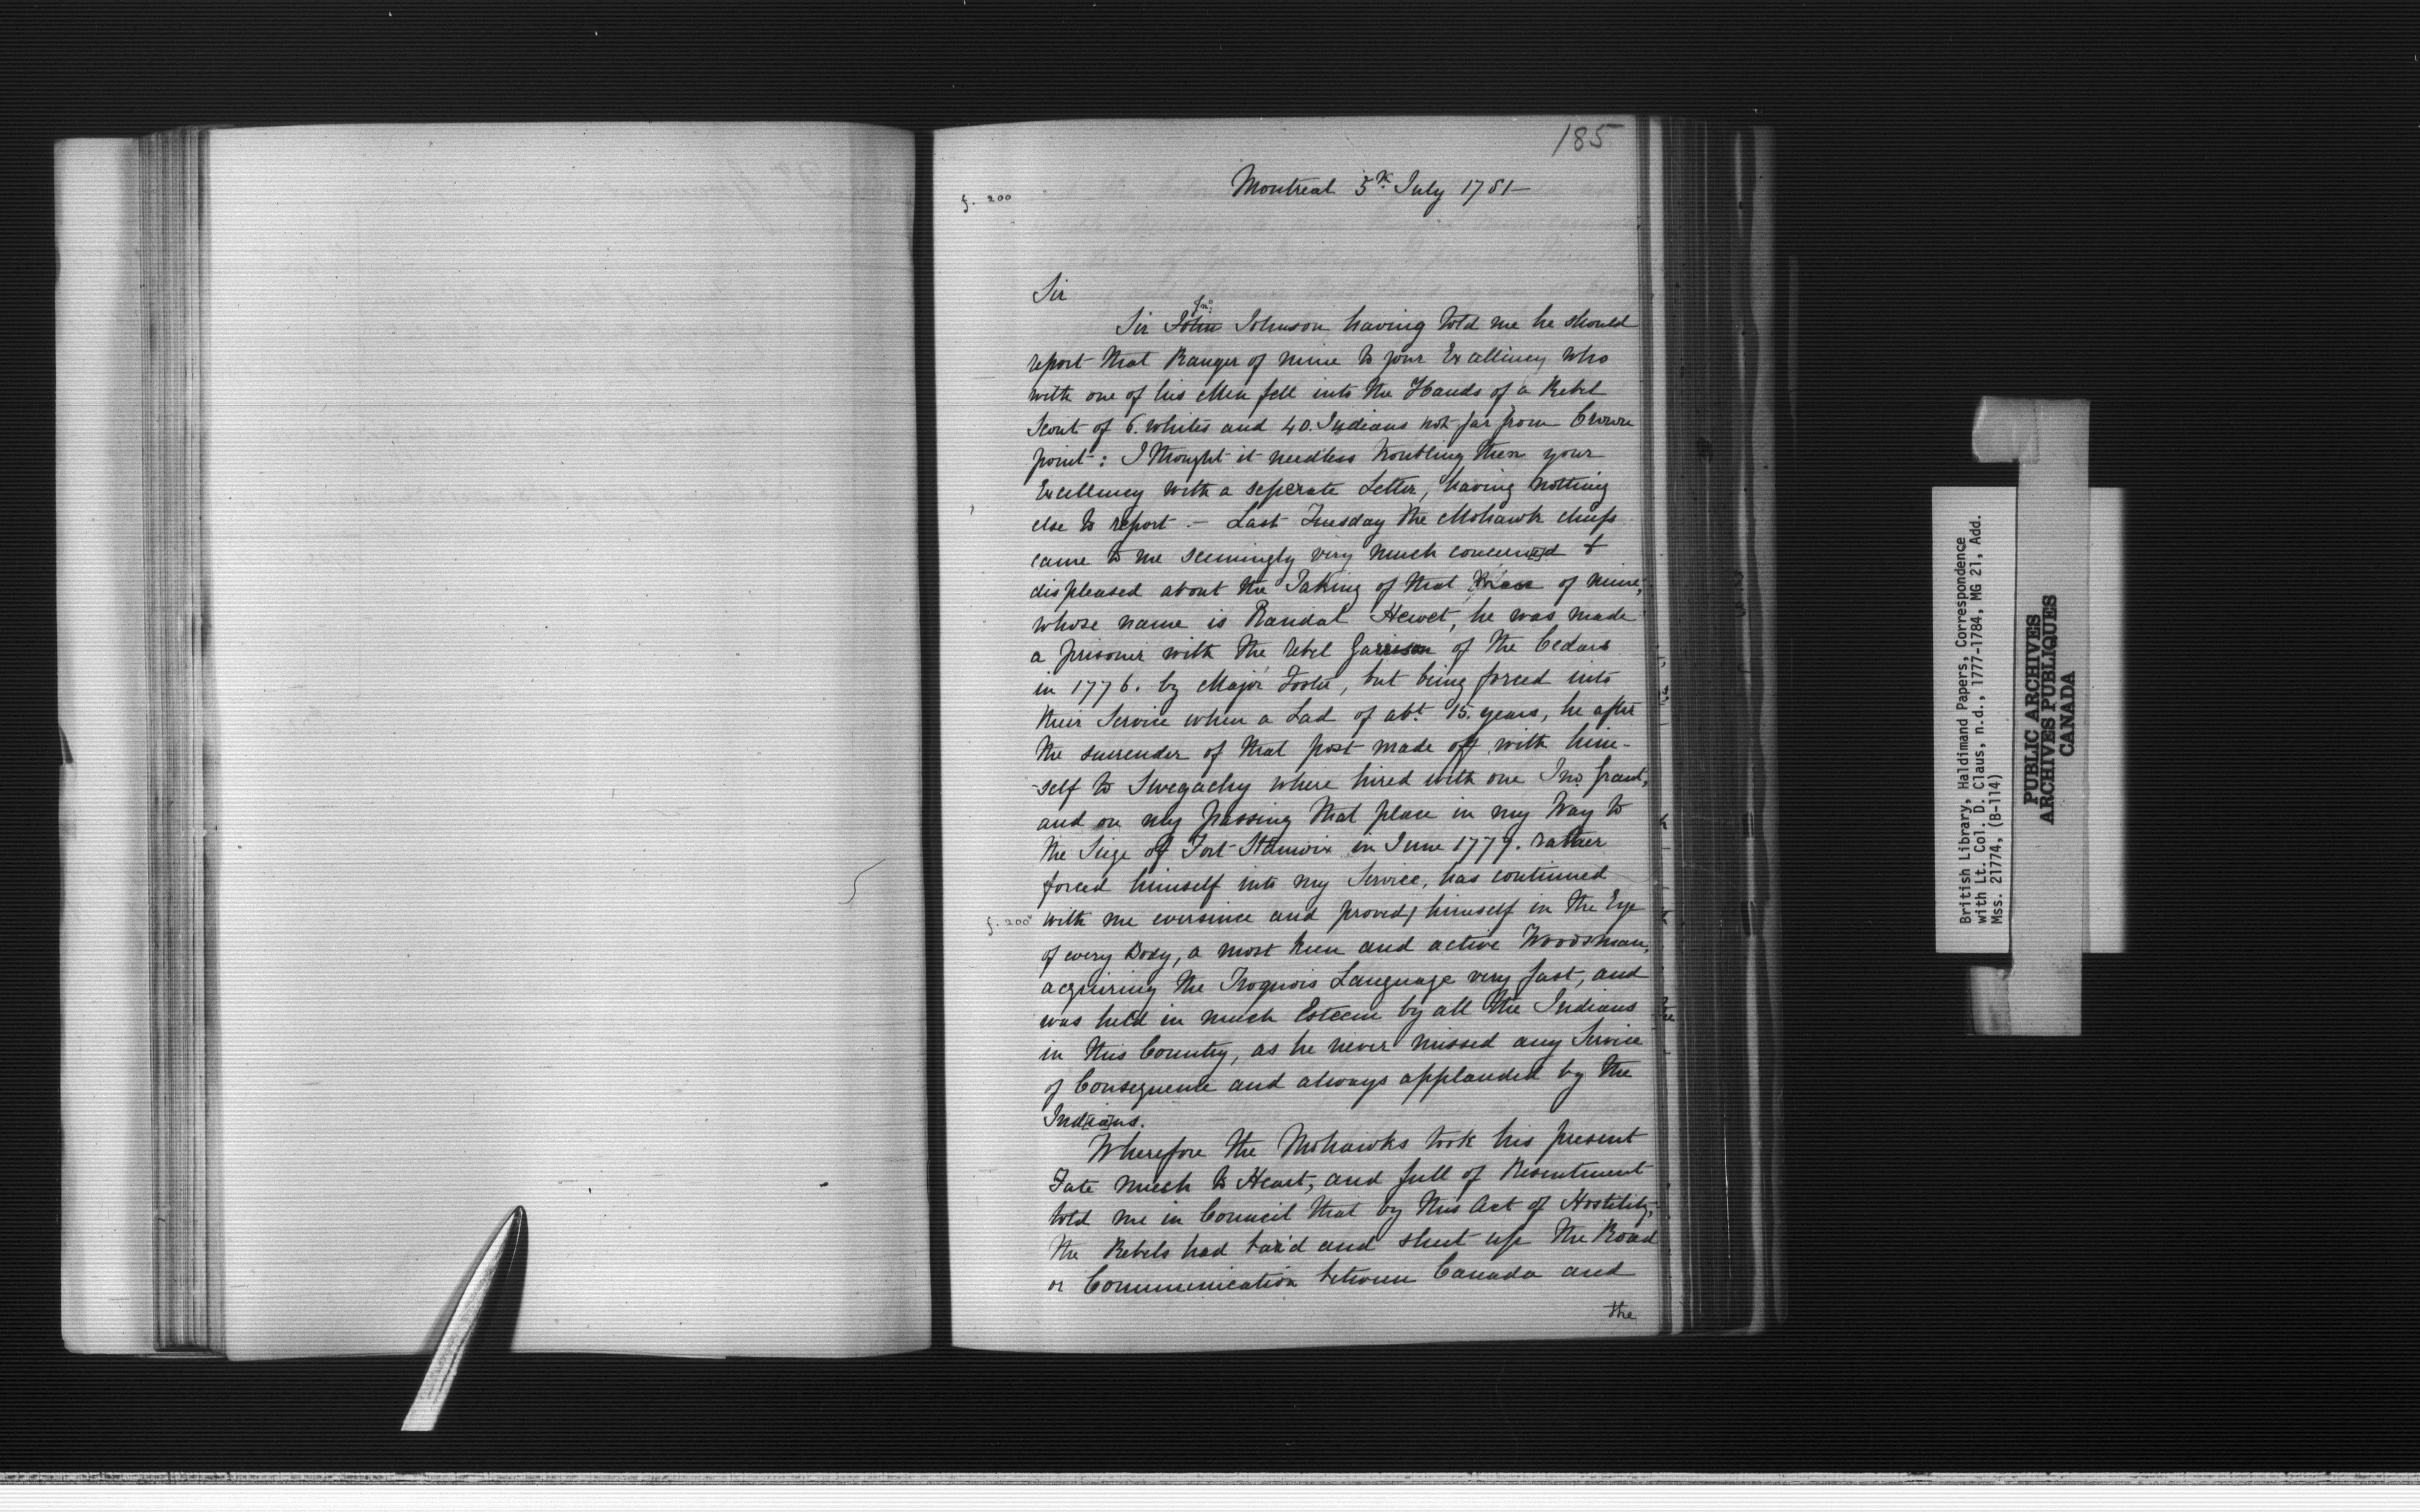 185
Montreal 5th July 1781—
f. 200
Sir
Sir John Jno. Johnson having told me he should
report that Ranger of mine to your Excellency who
with one of his Men fell into the Hands of a Rebel
Scout of 6. whites and 40. Indians not far from Crown
point: I thought it needless troubling then your
Excellency with a seperate Letter, having nothing
else to report.— Last Tuesday the Mohawk chiefs
came to me seemingly very much concerned &
displeased about the Taking of that Man of mine,
whose name is Randal Hewet, he was made
a prisoner with the rebel Garrison of the Cedars
in 1776. by Major Foster, but being forced into
their Service when a Lad of abt. 15. years, he after
the surrender of that post made off with him-
-self to Swegachy where hired with one Jno. Grant,
and on my passing that place in my Way to
the Siege of Fort Stanwix in June 1777. rather
forced himself into my Service, has continued
f. 200v
with me eversince and proved himself in the Eye
of every Body, a most keen and active Woodsman,
acquiring the Iroquois Language very fast, and
was held in much Esteem by all the Indians
in this Country, as he never missed any Service
of Consequence and always applauded by the
Indians.
Wherefore the Mohawks took his present
Fate much to Heart, and full of Resentment
told me in Council that by this Act of Hostility,
the Rebels had bar'd and shut up the Road
or Communication between Canada and
the
British Library, Haldimand Papers, Correspondence
with Lt. Col. D. Claus, n.d., 1777-1784, MG 21, Add.
Mss. 21774, (B-114)
PUBLIC ARCHIVES
ARCHIVES PUBLIQUES
CANADA